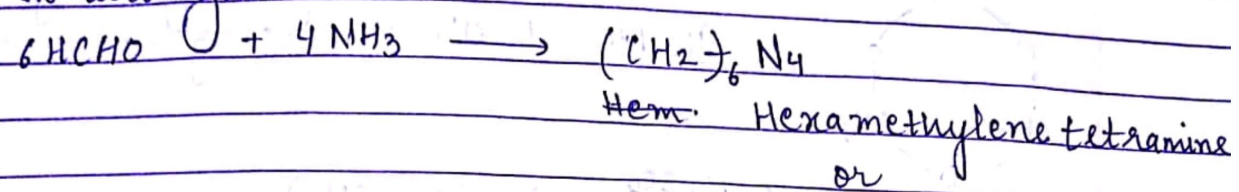 6HCHO + 4 NH3 ⟶ (CH2)6 N4
Hem. Hexamethylene tetramine
or